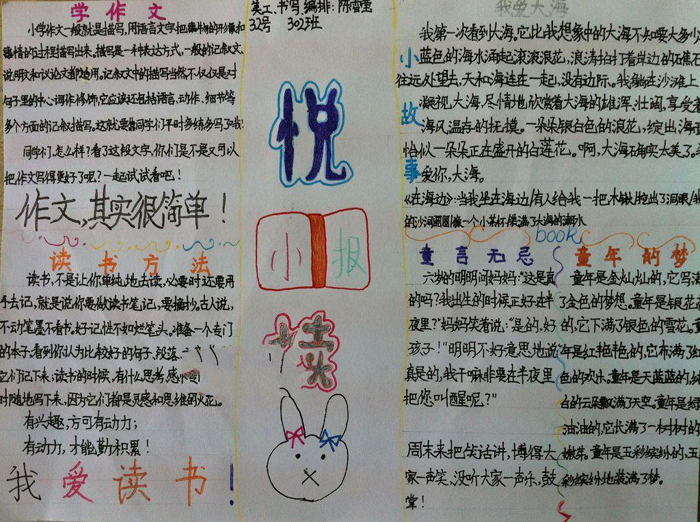 学作文
小学作文一般就是描写,用语言文字把
事情的过程描写出来,描写是一种表达方式,一般的记叙文
说明文和议论文都适用,记叙文中的描写当然不仅仅是对
句子里的中心词作修饰,它应该还包括语言、动作、细节等
多个方面的记叙描写。这就要靠同学们平时多练多写了哦!
同学们,怎么样?看了这段文字,你们是不是又可以
把作文写得更好了呢?一起试试看吧!
作文,其实很简单!
读书方法
读书,不是让你单纯地去读,必要时还要用
手去记,就是说你要做读书笔记,要摘抄。古人说,
不动笔墨不看书。好记性不如烂笔头。准备一个专门
的本子,看到你认为比较好的句子、段落
它们记下来;读书的时候,有什么思考感
时随地写下来,因为它们都是灵感和思维的火花。
有兴趣,方可有动力;
有动力,才能勤积累!
我爱读书!
美工、书写、编排:陈雪莹
32号 302班
悦
小报
我爱大海
我第一次看到大海,它比我想象中的大海不知要大多少
蓝色的海水涌起滚滚浪花,浪涛拍打着岸边的礁石
往远处望去,天和海连在一起,没有边际。我躺在沙滩上
凝视大海,尽情地欣赏着大海的雄浑、壮阔,享受着
海风温存的抚摸。一朵朵银白色的浪花,绽出海面
恰似一朵朵正在盛开的白莲花。啊,大海确实太美了。
爱你,大海。
小故事
《在海边》:当我坐在海边
的沙河圆圆像一个小茶杯候满了大海的潮水
book
童言无忌
六岁的明明问妈妈:"这是真
的吗?我出生的时候正好在半
夜里?"妈妈笑着说:"是的,好
孩子!"明明不好意思地说
真是的,我干嘛非要在半夜里
把您叫醒呢?"
周末来把笑话讲,博得大
家一声笑、没听大家一声乐,鼓
掌!
童年的梦
童年是金灿灿的,它写满
了金色的梦想。童年是银花花
的,它下满了银色的雪花。童
年是红艳艳的,它布满了红
色的欢乐。童年是天蓝蓝的,
白的云朵飘满了天空。童年是绿
油油的,它长满了一村村的
嫩芽。童年是五彩缤纷的,五
彩缤纷地装满了梦。